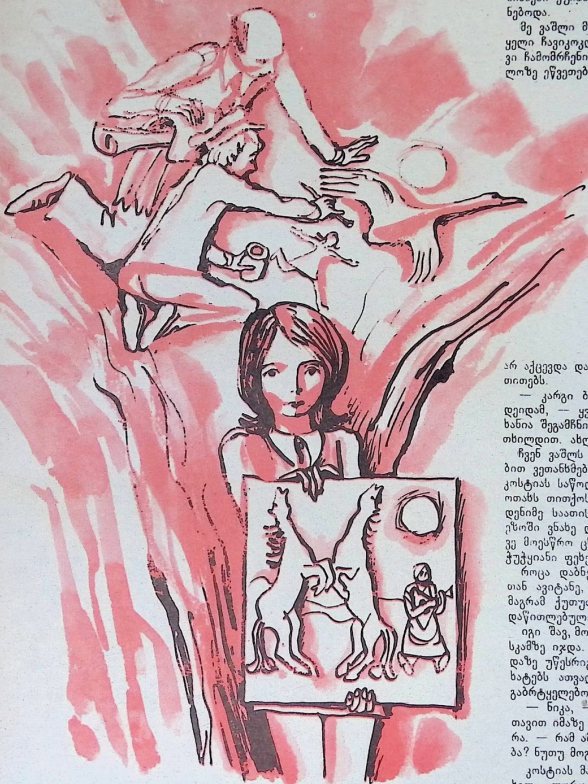 ნებოდა.
მე ვაშლი მ
ყელი ჩავიკოკ
ვი ჩამომრჩენი
ლოზე ეწვეთებ
არ აქცევდა და
თითებს.
— კარგი ბ
დეიდამ, — ყვ
ხანია შეგამჩნი
თხილდით. ახლ
ჩვენ ვაშლს
ბით ვეთანხმებ
კოსტიას საწოლ
ოთახს თითქოს
დენიმე საათის
ეზოში ვნახე დ
ვე მოესწრო
ჭუჭყიანი ფეხე
როცა დაბნ
თან ავიტანე,
მაგრამ ქუთუთ
დაწითლებულ
იგი შავ, მო
სკამზე იჯდა.
დაზე უწესრიგ
ხატებს ათვალ
გაბრტყელებო
— ნიკა, —
თავით იმაზე
რა. — რამ ა
ბა? ნუთუ მოგ
კოსტიას მ